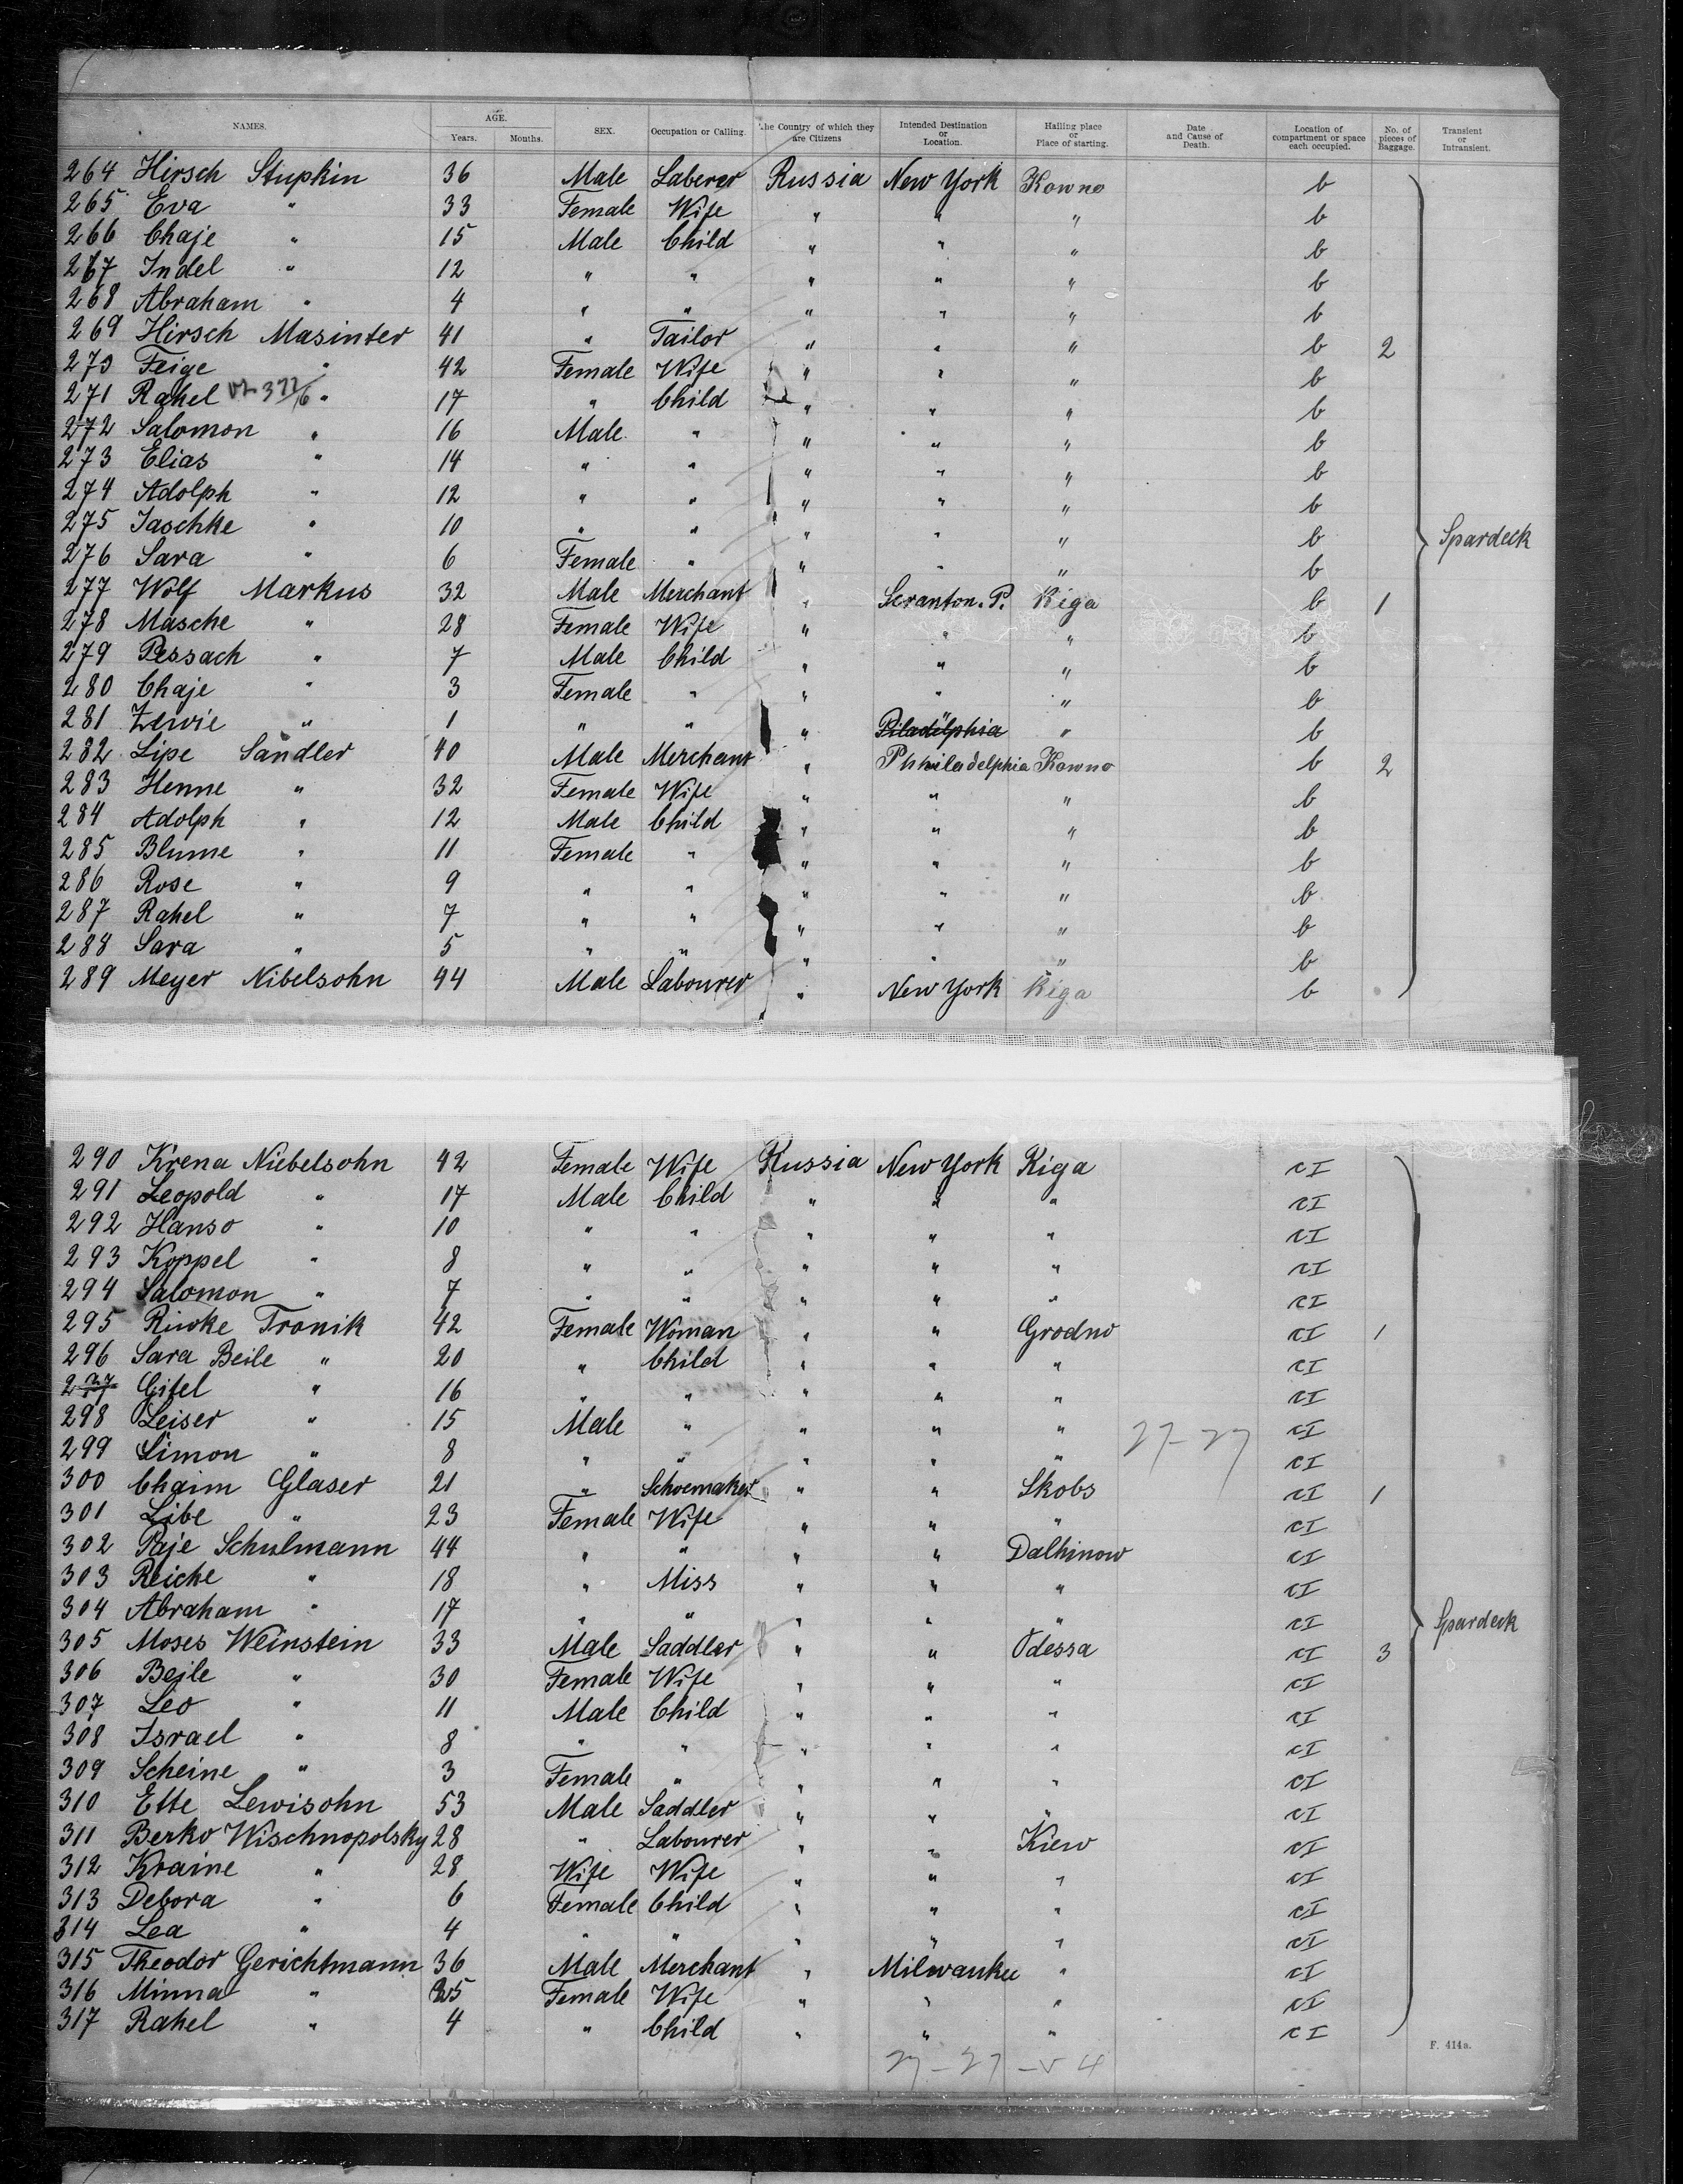 NAMES. AGE. Years. Months. SEX. Occupation or Calling. The Country of which they are Citizens Intended Destination or Location. Hailing place or Place of starting. Date and Cause of Death. Location of compartment or space each occupied. No. of pieces of Baggage. Transient or Intransient.
264 Hirsch Stupkin 36 Male Laberer Russia New York Kowno b
265 Eva " 33 Female Wife " " " b
266 Chaje " 15 Male Child " " " b
267 Indel " 12 " " " " " b
268 Abraham " 4 " " " " " b
269 Hirsch Masinter 41 " Tailor " " " b 2
270 Feige " 42 Female Wife " " " b
271 Rahel " 17 " Child " " " b
272 Salomon " 16 Male " " " " b
273 Elias " 14 " " " " " b
274 Adolph " 12 " " " " " b
275 Jaschke " 10 " " " " " b Spardeck
276 Sara " 6 Female " " " " b
277 Wolf Markus 32 Male Merchant " Scranton. P. Riga b 1
278 Masche " 28 Female Wife " " " b
279 Pessach " 7 Male Child " " " b
280 Chaje " 3 Female " " " " b
281 Zewie " 1 " " " " Piladelphia " b
282 Lipe Sandler 40 Male Merchant " Phhiladelphia Kowno b 2
283 Henne " 32 Female Wife " " " b
284 Adolph " 12 Male Child " " " b
285 Blume " 11 Female " " " " b
286 Rose " 9 " " " " " b
287 Rahel " 7 " " " " " b
288 Sara " 5 " " " " " b
289 Meyer Nibelsohn 44 Male Labourer " New York Riga b
290 Krena Niebelsohn 42 Female Wife Russia New York Riga cI
291 Leopold " 17 Male Child " " " cI
292 Hanso " 10 " " " " " cI
293 Koppel " 8 " " " " " cI
294 Salomon " 7 " " " " " cI
295 Riwke Tronik 42 Female Woman " " Grodno cI 1
296 Sara Beile " 20 " Child " " " cI
297 Gitel " 16 " " " " " cI
298 Leiser " 15 Male " " " " 27-27 cI
299 Simon " 8 " " " " " cI
300 Chaim Glaser 21 " Schoemaker " " Skobs cI 1
301 Libe " 23 Female Wife " " " cI
302 Paje Schulmann 44 " " " " Dalhinow cI
303 Reiche " 18 " Miss " " " cI
304 Abraham " 17 " " " " " cI Spardeck
305 Moses Weinstein 33 Male Saddler " " Odessa cI 3
306 Beile " 30 Female Wife " " " cI
307 Leo " 11 Male Child " " " cI
308 Israel " 8 " " " " " cI
309 Scheine " 3 Female " " " " cI
310 Ette Lewisohn 53 Male Saddler " " " cI
311 Berko Wischnopolsky 28 " Labourer " " Kiew cI
312 Kraine " 28 Wife Wife " " " cI
313 Debora " 6 Female Child " " " cI
314 Lea " 4 " " " " " cI
315 Theodor Gerichtmann 36 Male Merchant " Milwaukee " cI
316 Minna " 25 Female Wife " " " cI
317 Rahel " 4 " Child " " " cI
F. 414a.
27-27